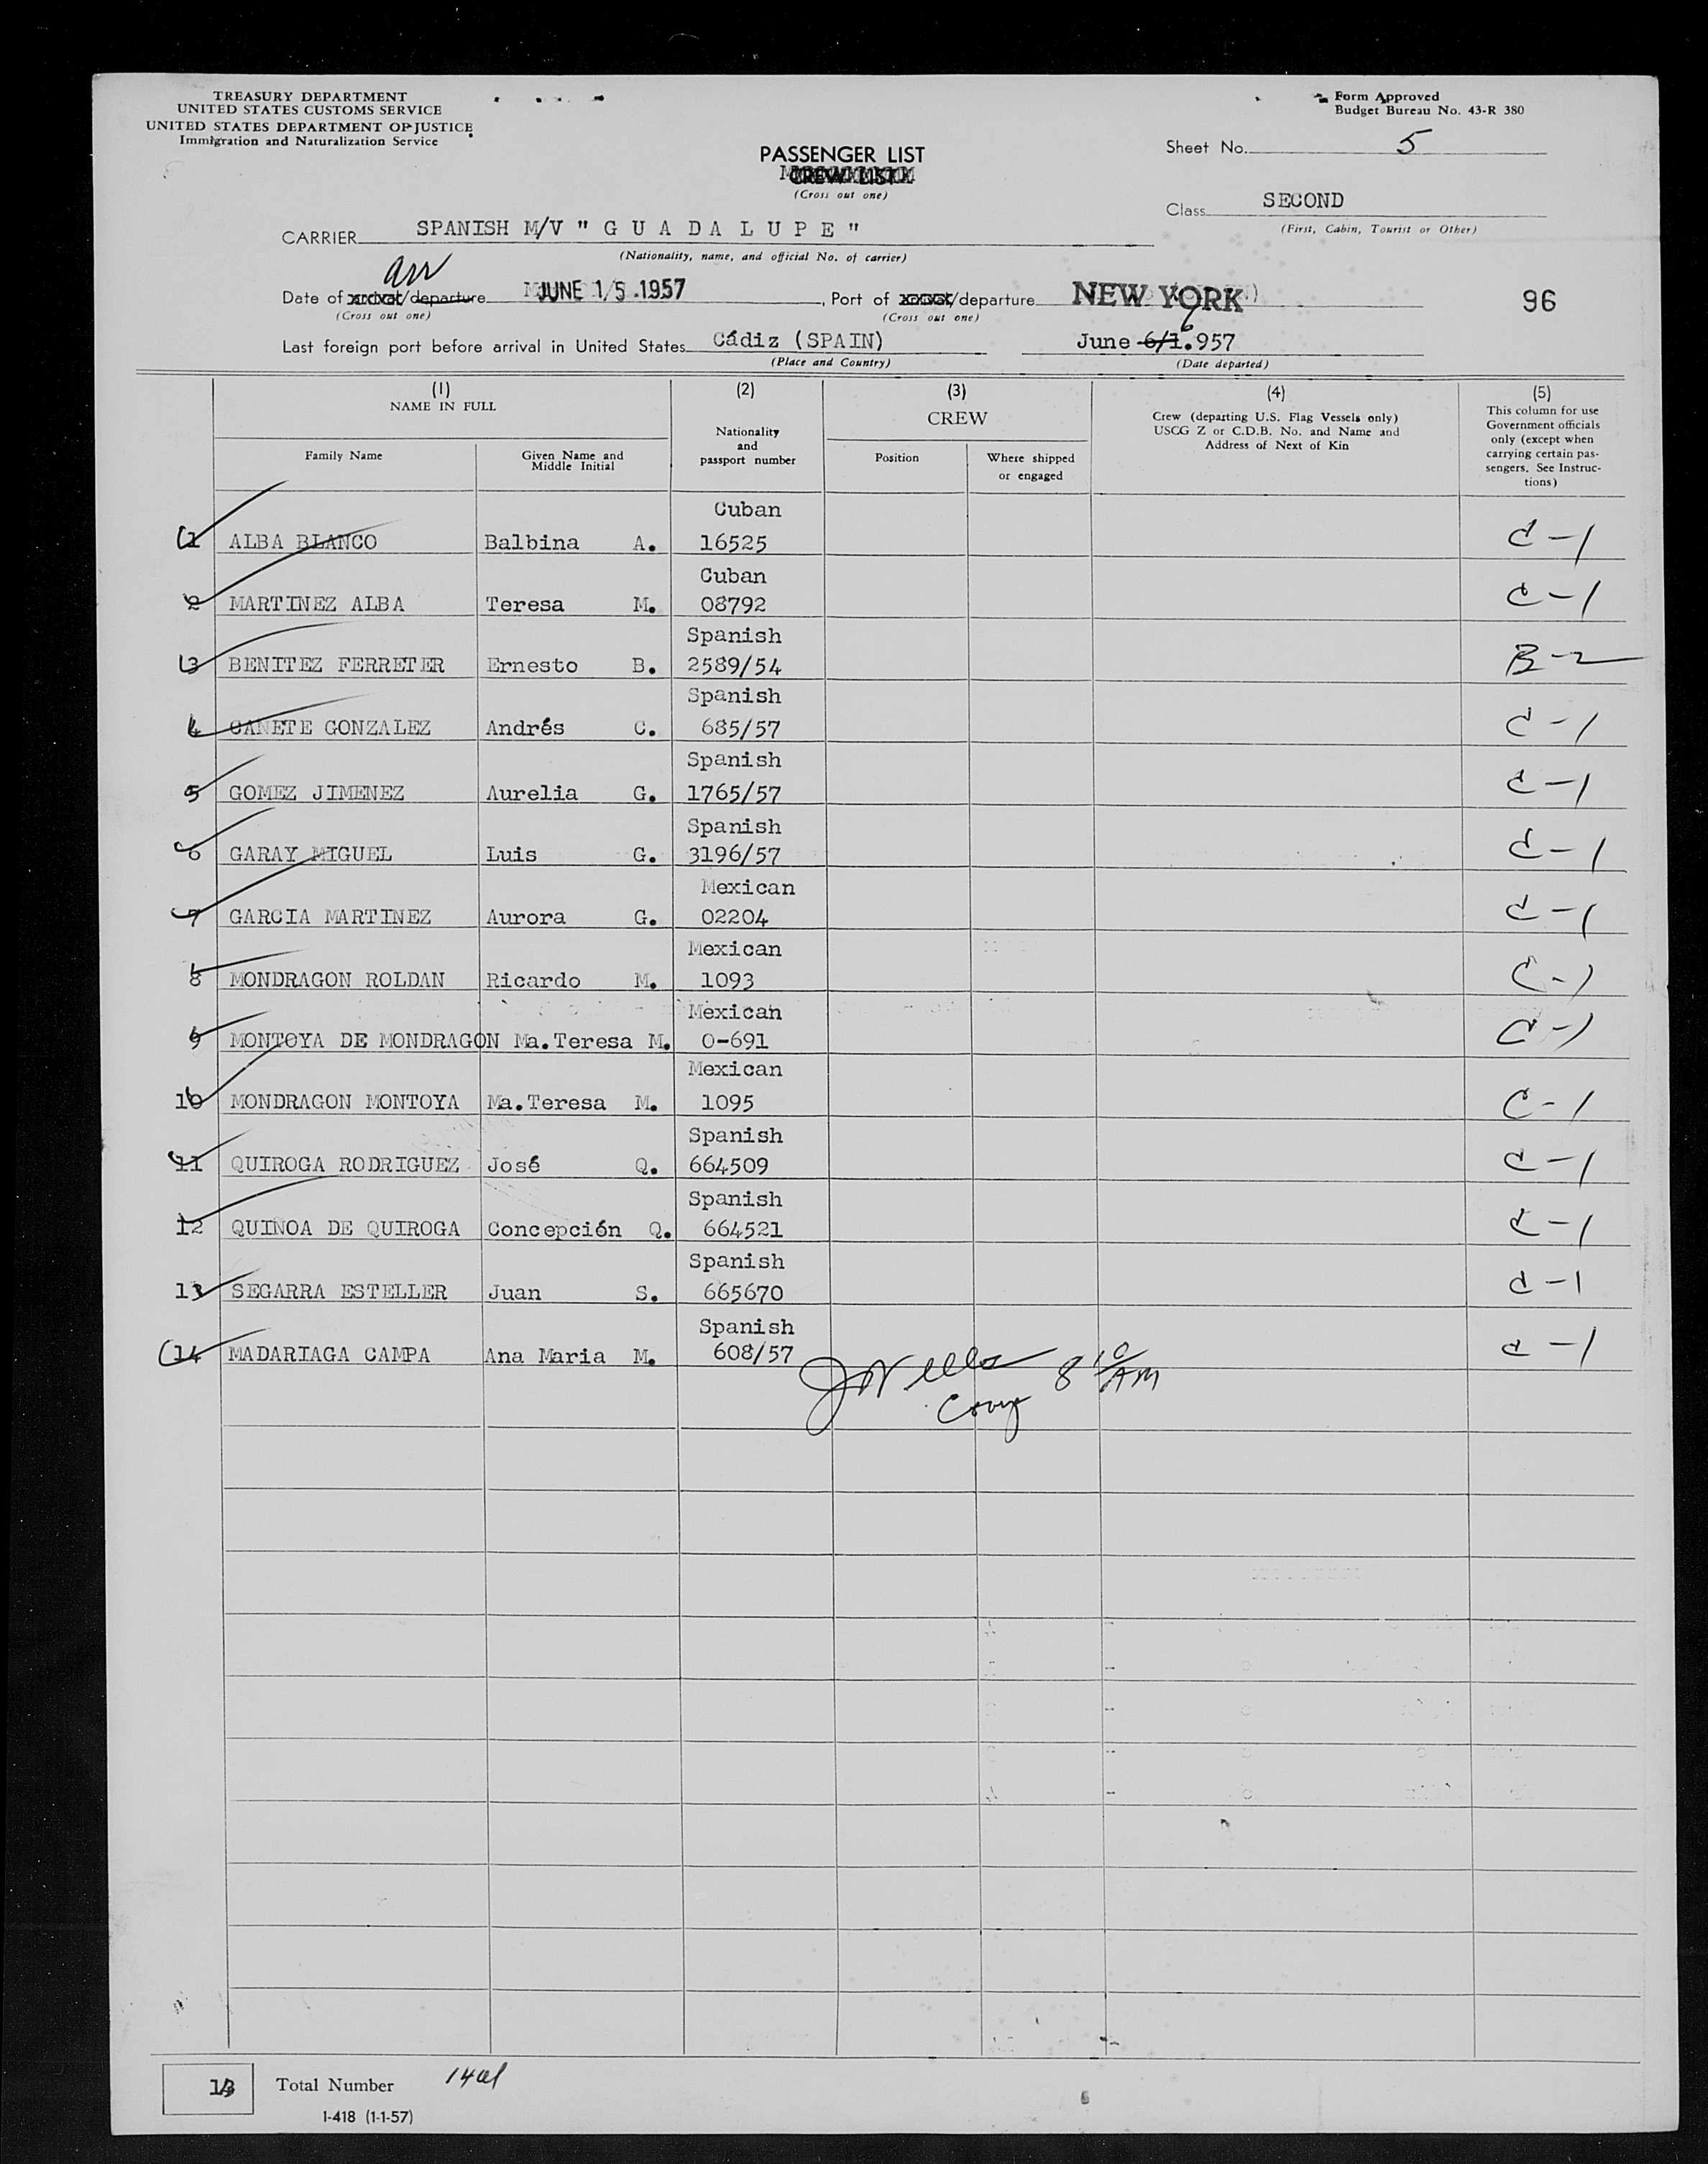 TREASURY DEPARTMENT
UNITED STATES CUSTOMS SERVICE
UNITED STATES DEPARTMENT OF JUSTICE
Immigration and Naturalization Service
Form Approved
Budget Bureau No. 43-R 380
Sheet No. 5
PASSENGER LIST
CREW LIST
(Cross out one)
Class SECOND
(First, Cabin, Tourist or Other)
CARRIER SPANISH M/V " G U A D A L U P E "
(Nationality, name, and official No. of carrier)
arr
Date of arrival/departure JUNE 15.1957, Port of arrival/departure NEW YORK
(Cross out one) (Cross out one)
96
Last foreign port before arrival in United States Cádiz (SPAIN) June 6/1.957
6
(Place and Country) (Date departed)
(1) (2) (3) (4) (5)
NAME IN FULL
Family Name
Given Name and Middle Initial
Nationality and passport number
CREW
Position
Where shipped or engaged
Crew (departing U.S. Flag Vessels only)
USCG Z or C.D.B. No. and Name and
Address of Next of Kin
This column for use
Government officials
only (except when
carrying certain pas-
sengers. See Instruc-
tions)
Cuban
1 ALBA BLANCO Balbina A. 16525 C-1
Cuban
2 MARTINEZ ALBA Teresa M. 08792 C-1
Spanish
3 BENITEZ FERRETER Ernesto B. 2589/54 B-2
Spanish
4 CAÑETE GONZALEZ Andrés C. 685/57 C-1
Spanish
5 GOMEZ JIMENEZ Aurelia G. 1765/57 C-1
Spanish
6 GARAY MIGUEL Luis G. 3196/57 C-1
Mexican
7 GARCIA MARTINEZ Aurora G. 02204 C-1
Mexican
8 MONDRAGON ROLDAN Ricardo M. 1093 C-1
Mexican
9 MONTOYA DE MONDRAGON Ma.Teresa M. 0-691 C-1
Mexican
10 MONDRAGON MONTOYA Ma.Teresa M. 1095 C-1
Spanish
11 QUIROGA RODRIGUEZ José Q. 664509 C-1
Spanish
12 QUIÑOA DE QUIROGA Concepción Q. 664521 C-1
Spanish
13 SEGARRA ESTELLER Juan S. 665670 C-1
Spanish
14 MADARIAGA CAMPA Ana Maria M. 608/57 C-1
8 10 AM
13 Total Number 14
I-418 (1-1-57)